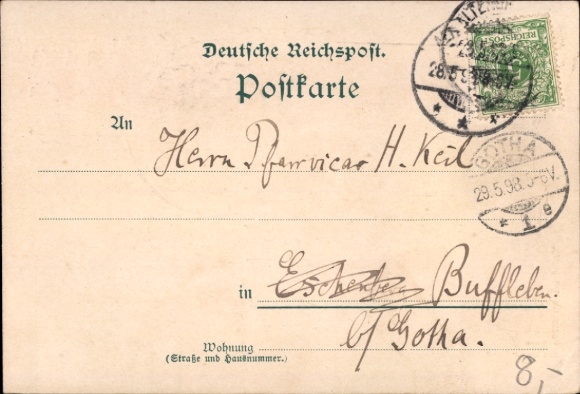 Deutsche Reichspost.
Postkarte
REICHSPOST
28.5.98
An
Herrn Pfarrvicar H. Keil
GOTHA
29.5.98. 5-6V.
* 1 e
in Eschenberg Buffleben.
b/Gotha.
Wohnung
(Straße und Hausnummer.)
8,-